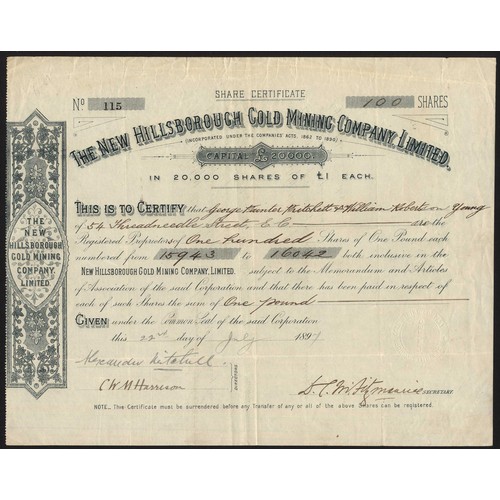 SHARE CERTIFICATE
No 115
100 SHARES
THE NEW HILLSBOROUGH GOLD MINING COMPANY, LIMITED.
(INCORPORATED UNDER THE COMPANIES' ACTS, 1862 TO 1890)
CAPITAL £20000
IN 20,000 SHARES OF £1 EACH.
THIS IS TO CERTIFY that George Hunter Mitchell & William Robertson Young
of 54 Threadneedle Street, E.C. are the
Registered Proprietors of One hundred Shares of One Pound each
numbered from 15943 to 16042 both inclusive in the
NEW HILLSBOROUGH GOLD MINING COMPANY, LIMITED. subject to the Memorandum and Articles
of Association of the said Corporation and that there has been paid in respect of
each of such Shares the sum of One pound
GIVEN under the Common Seal of the said Corporation
this 22nd day of July 1897
Alexander Mitchell
C W M Harrison
DIRECTORS
SECRETARY
NOTE. This Certificate must be surrendered before any Transfer of any or all of the above Shares can be registered.
THE
NEW
HILLSBOROUGH
GOLD MINING
COMPANY,
LIMITED